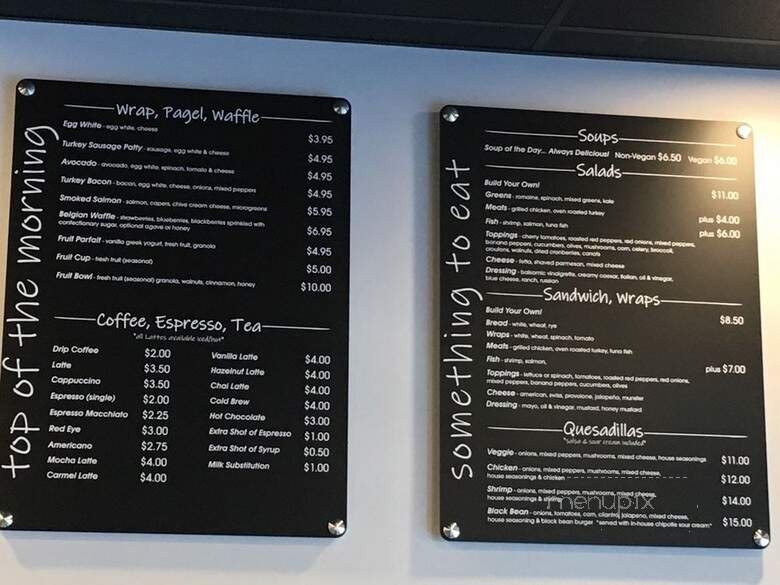 top of the morning
Wrap, Pagel, Waffle
Egg White - egg white, cheese $3.95
Turkey Sausage Patty - sausage, egg white & cheese $4.95
Avocado - avocado, egg white, spinach, tomato & cheese $4.95
Turkey Bacon - bacon, egg white, cheese, onions, mixed peppers $4.95
Smoked Salmon - salmon, capers, chive cream cheese, microgreens $5.95
Belgian Waffle - strawberries, blueberries, blackberries sprinkled with
confectionary sugar, optional agave or honey $6.95
Fruit Parfait - vanilla greek yogurt, fresh fruit, granola $4.95
Fruit Cup - fresh fruit (seasonal) $5.00
Fruit Bowl - fresh fruit (seasonal) granola, walnuts, cinnamon, honey $10.00
Coffee, Espresso, Tea
"all Lattes available iced/hot"
Drip Coffee $2.00
Latte $3.50
Cappuccino $3.50
Espresso (single) $2.00
Espresso Macchiato $2.25
Red Eye $3.00
Americano $2.75
Mocha Latte $4.00
Carmel Latte $4.00
Vanilla Latte $4.00
Hazelnut Latte $4.00
Chai Latte $4.00
Cold Brew $4.00
Hot Chocolate $3.00
Extra Shot of Espresso $1.00
Extra Shot of Syrup $0.50
Milk Substitution $1.00
something to eat
Soups
Soup of the Day... Always Delicious! Non-Vegan $6.50 Vegan $6.00
Salads
Build Your Own!
Greens - romaine, spinach, mixed greens, kale $11.00
Meats - grilled chicken, oven roasted turkey plus $4.00
Fish - shrimp, salmon, tuna fish plus $6.00
Toppings - cherry tomatoes, roasted red peppers, red onions, mixed peppers,
banana peppers, cucumbers, olives, mushrooms, corn, celery, broccoli,
croutons, walnuts, dried cranberries, carrots
Cheese - fetta, shaved parmesan, mixed cheese
Dressing - balsamic vinaigrette, creamy caesar, italian, oil & vinegar,
blue cheese, ranch, russian
Sandwich, Wraps
Build Your Own! $8.50
Bread - white, wheat, rye
Wraps - white, wheat, spinach, tomato
Meats - grilled chicken, oven roasted turkey, tuna fish
Fish - shrimp, salmon, plus $7.00
Toppings - lettuce or spinach, tomatoes, roasted red peppers, red onions,
mixed peppers, banana peppers, cucumbers, olives
Cheese - american, swiss, provolone, jalapeño, munster
Dressing - mayo, oil & vinegar, mustard, honey mustard
Quesadillas
"salsa & sour cream included"
Veggie - onions, mixed peppers, mushrooms, mixed cheese, house seasonings $11.00
Chicken - onions, mixed peppers, mushrooms, mixed cheese,
house seasonings & chicken $12.00
Shrimp - onions, mixed peppers, mushrooms, mixed cheese,
house seasonings & shrimp $14.00
Black Bean - onions, tomatoes, corn, cilantro, jalapeno, mixed cheese,
house seasoning & black bean burger "served with in-house chipotle sour cream" $15.00
menupix